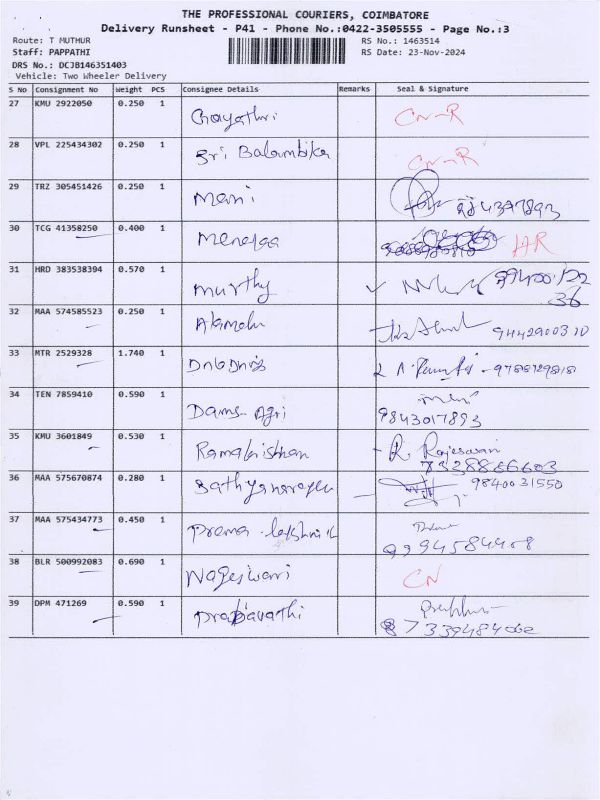 THE PROFESSIONAL COURIERS, COIMBATORE
Delivery Runsheet - P41 - Phone No.:0422-3505555 - Page No.:3
Route: T MUTHUR RS No.: 1463514
Staff: PAPPATHI RS Date: 23-Nov-2024
DRS No.: DCJB146351403
Vehicle: Two Wheeler Delivery
S No Consignment No Weight PCS Consignee Details Remarks Seal & Signature
27 KMU 2922050 0.250 1 Gayathri CN-R
28 VPL 225434302 0.250 1 Sri Balambika CN-R
29 TRZ 305451426 0.250 1 Mani
30 TCG 41358250 0.400 1 HR
31 HRD 383538394 0.570 1 Murthy 99400122
36
32 MAA 574585523 0.250 1 9442900310
33 MTR 2529328 1.740 1
34 TEN 7859410 0.590 1 Dams Agri
9843017893
35 KMU 3601849 0.530 1 Ramakrishnan R. Rajeswari
7328866603
36 MAA 575670874 0.280 1 Sathyanarayan 9840031550
37 MAA 575434773 0.450 1 Prema
9994584408
38 BLR 500992083 0.690 1 Nageswari CN
39 DPM 471269 0.590 1 Prabavathi
7339484062